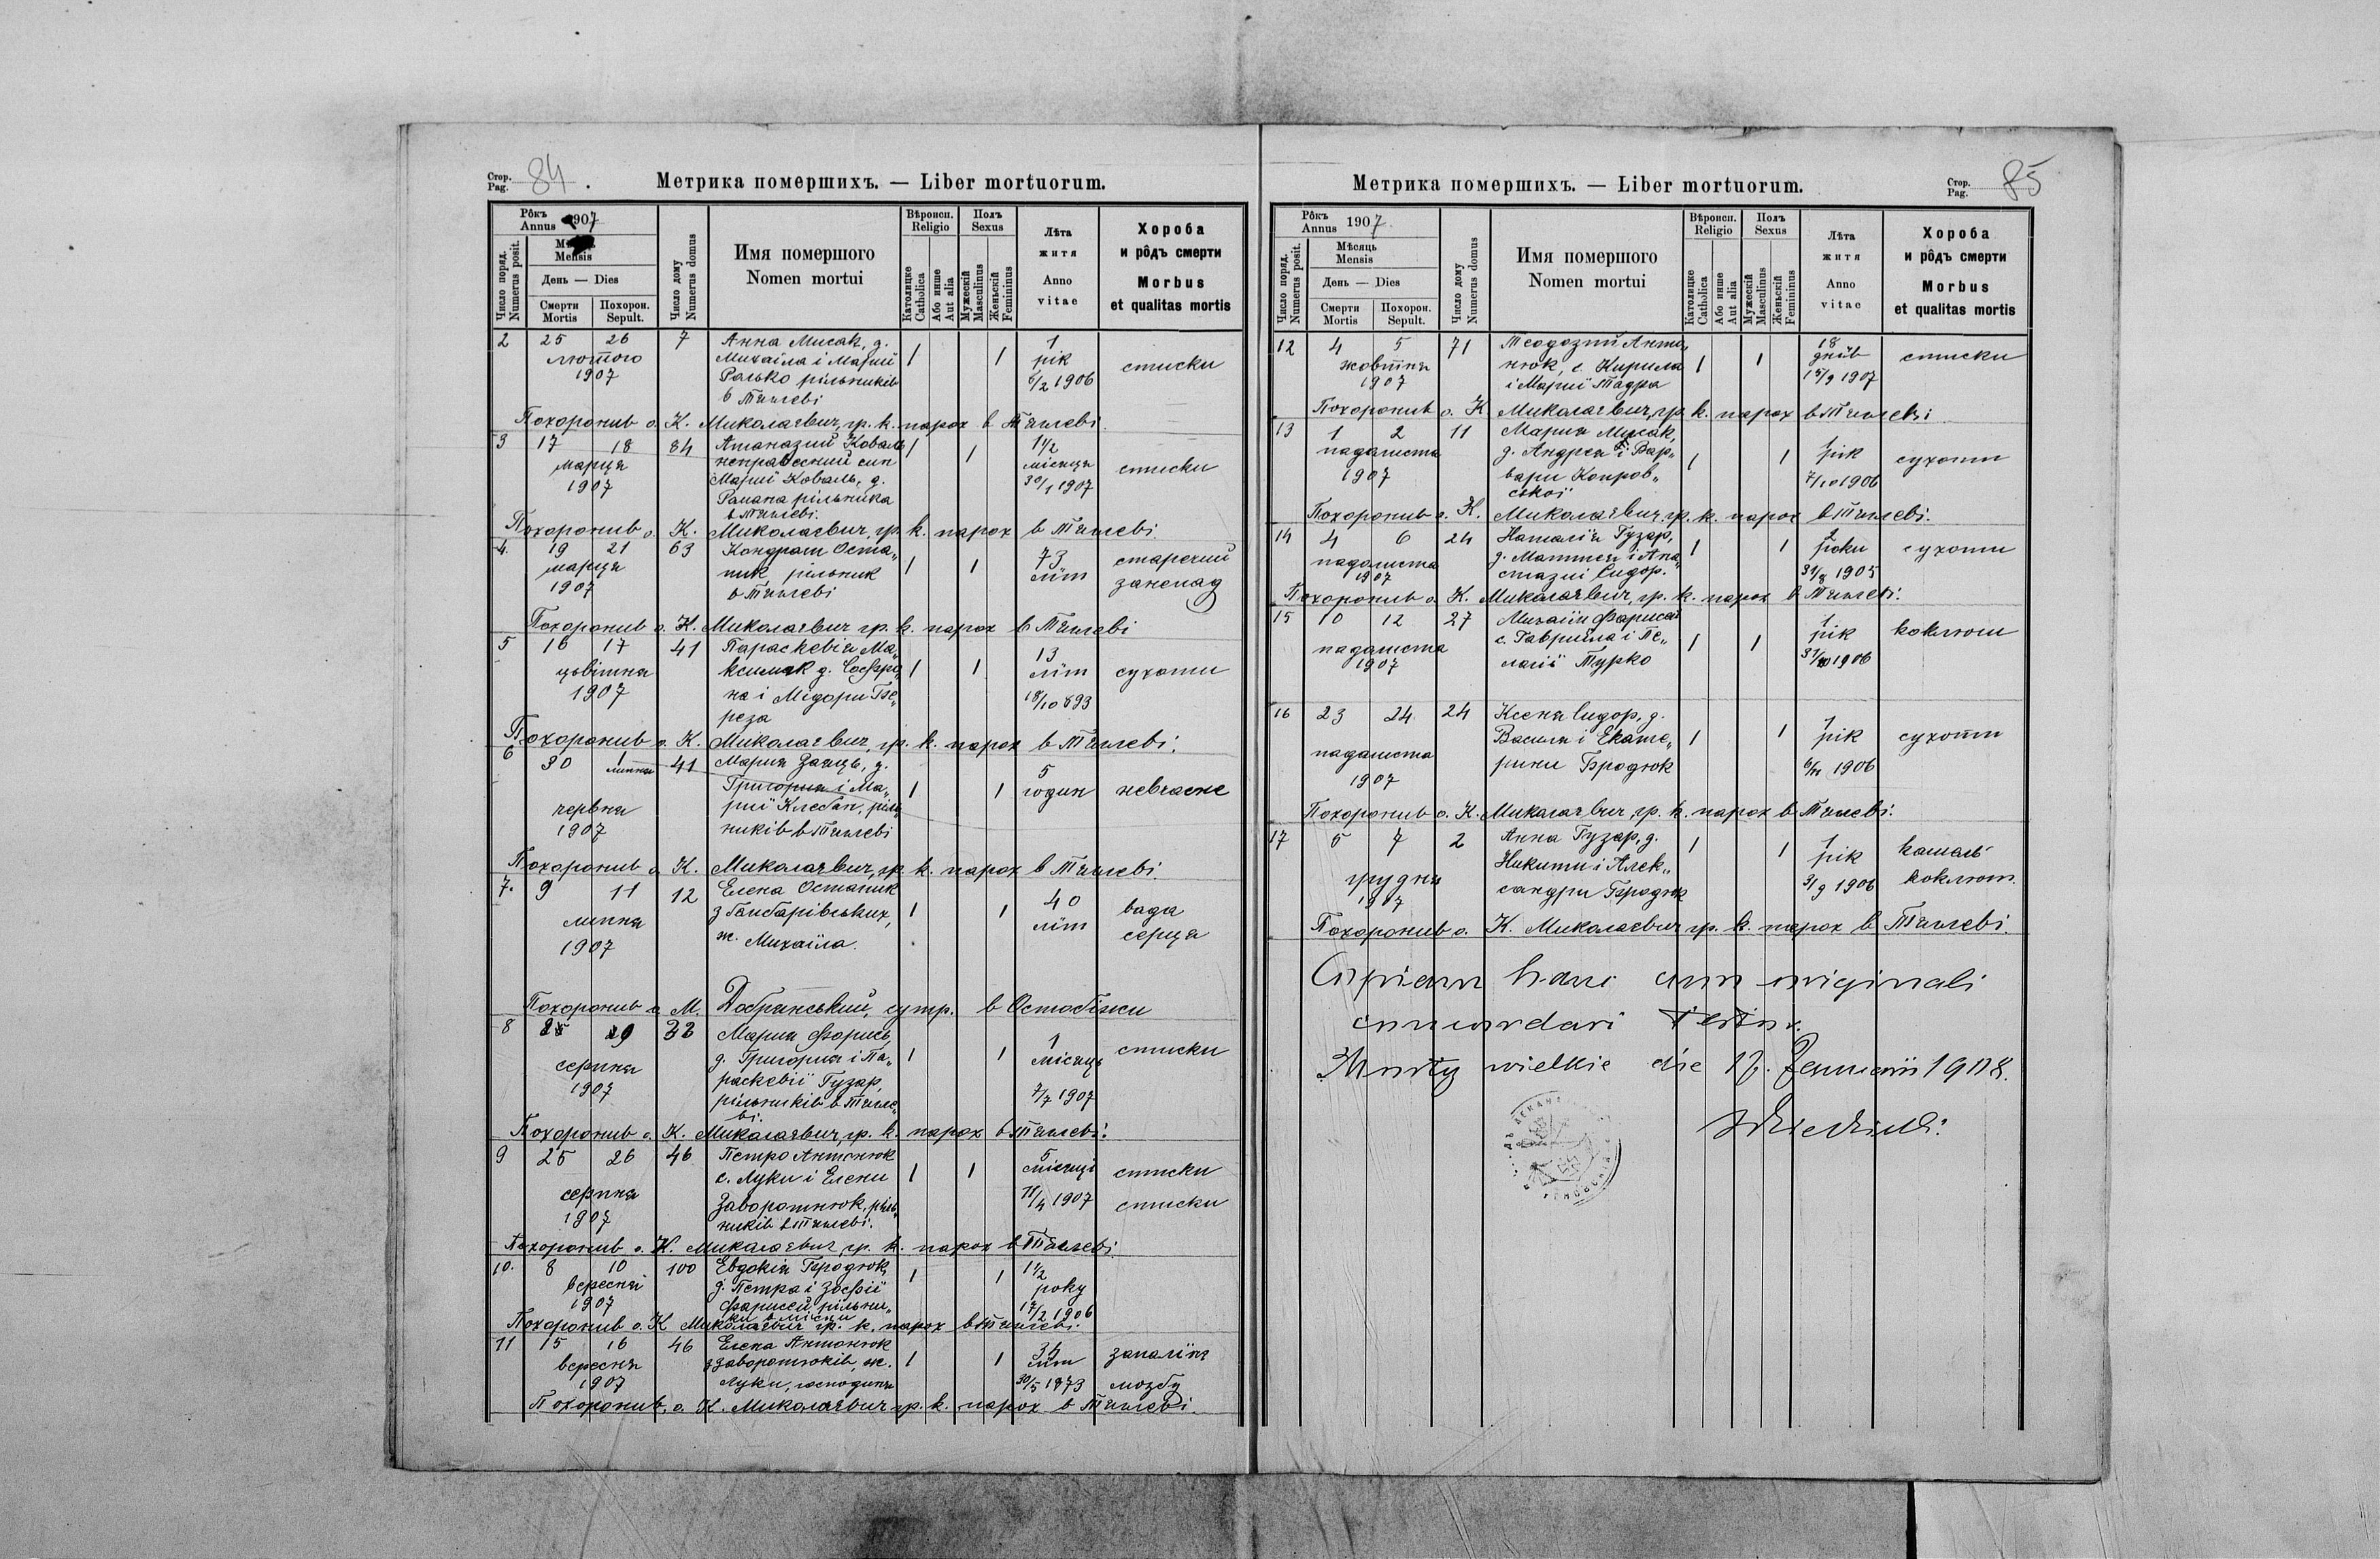 Стор.
Pag. 84.
Метрика помершихъ. — Liber mortuorum.
Рôкъ
Annus 1907
Mensis
День — Dies
Смерти
Mortis
Похорон.
Sepult.
Число поряд.
Numerus posit.
Число дому
Numerus domus
Имя помершого
Nomen mortui
Вѣроисп.
Religio
Католицке
Catholica
Або инше
Aut alia
Полъ
Sexus
Мужескій
Masculinus
Женьскій
Femininus
Лѣта
житя
Anno
vitae
Хороба
и рôдъ смерти
Morbus
et qualitas mortis
2 25 26 7 Анна Мисак, д. 1
лютого Михаіла і Мариї 1 1 рік стиски
1907 Ралько рільників 6/2 1906
в Тяглеві
Похоронив о. К. Миколаєвич, гр. к. парох в Тяглеві
3 17 18 84 Атаназий Коваль 1 1 1½
марця неправесний син місяця стиски
1907 Мариї Коваль, д. 30/1 1907
Романа рільника
в Тяглеві.
Похоронив о. К. Миколаєвич, гр. к. парох в Тяглеві.
4. 19 21 63 Кондрат Оста„ 73 старечий
марця пик, рільник 1 1 літ занепад
1907 в Тяглеві
Похоронив о. К. Миколаєвич гр. к. парох в Тяглеві
5 16 17 41 Параскевія Ма„ 13
цьвітня ксимяк д. Софро„ 1 1 літ сухоти
1907 на і Мідори Бе„ 18/10 893
реза
Похоронив о. К. Миколаєвич, гр. к. парох в Тяглеві.
6 30 1 липня 41 Мария Заяць, д. 5
червня Григория і Ма„ 1 1 годин невчасне
1907 риї Клебан, ріль„
ників в Тяглеві
Похоронив о. К. Миколаєвич, гр. к. парох в Тяглеві.
7. 9 11 12 Елена Остапик 40 вада
липня з Бамбарівських, 1 1 літ серця
1907 ж. Михаїла.
Похоронив о. М. Добрянський, сутр. в Остобіжи
8 25 29 33 Мария Форись, 1 стиски
серпня д. Григория і Па„ 1 1 місяць
1907 раскевії Гузар, 7/7 1907
рільників в Тягле„
ві.
Похоронив о. К. Миколаєвич, гр. к. парох в Тяглеві.
9 25 26 46 Петро Антонюк 5
с. Луки і Елени 1 1 місяці стиски
серпня Заворотнюк, ріль„ 11/4 1907 стиски
1907 ників в Тяглеві.
Похоронив о. К. Миколаєвич, гр. к. парох в Тяглеві.
10. 8 10 100 Евдокія Бродюк, 1 1 1½
вересня д. Петра і Зофії року
1907 Фарисей, рільни„ 17/2 1906
Похоронив о. К. Миколаєвич гр. к. парох в Тяглеві.
11 15 16 46 Елена Антонюк 34 запалїнє
вересня з Заворотнюків, ж. 1 1 літ
1907 Луки, господиня 30/5 1873 мозбу
Похоронив, о. К. Миколаєвич гр. к. парох в Тяглеві.
Метрика помершихъ. — Liber mortuorum.
Стор.
Pag. 85
Рôкъ
Annus 1907.
Мѣсяць
Mensis
День — Dies
Смерти
Mortis
Похорон.
Sepult.
Число поряд.
Numerus posit.
Число дому
Numerus domus
Имя помершого
Nomen mortui
Вѣроисп.
Religio
Католицке
Catholica
Або инше
Aut alia
Полъ
Sexus
Мужескій
Masculinus
Женьскій
Femininus
Лѣта
житя
Anno
vitae
Хороба
и рôдъ смерти
Morbus
et qualitas mortis
12 4 5 71 Теодозий Анто„ 18
жовтня нюк, с. Кирила 1 1 днїв стиски
1907 і Мариї Тадра 15/9 1907
Похоронив о. К Миколаєвич, гр. к. парох в Тяглеві.
13 1 2 11 Мария Мисак,
падолиста д. Андрея і Вар„ 1 1 1 рік сухоти
1907 вари Копров„ 7/10 1906
ської
Похоронив о. К. Миколаєвич, гр. к. парох в Тяглеві.
14 4 6 24 Наталія Гузар, 2
падолиста д. Маттея і Ана„ 1 1 роки сухоти
1907 стазиї Сидор. 31/8 1905
Похоронив о. К. Миколаєвич, гр. к. парох в Тяглеві.
15 10 12 27 Михаіл Фарисей 1
падолиста с. Гавриіла і Пе„ 1 1 рік коклюш
1907 лагії Турко 31/10 1906
16 23 24 24 Ксеня Сидор, д. 1
падолиста Василя і Екате„ 1 1 рік сухоти
1907 рини Бродюк 6/11 1906
Похоронив о. К. Миколаєвич, гр. к. парох в Тяглеві.
17 5 7 2 Анна Гузар, д. 1 1 1 кашель
грудня Никити і Алек„ рік коклюш.
1907 сандри Бродюк 3/9 1906
Похоронив о. К. Миколаєвич гр. к. парох в Тяглеві.
Copiam hanc cum originali
concordari testor.
Mosty wielkie die 17. Januarii 1908.